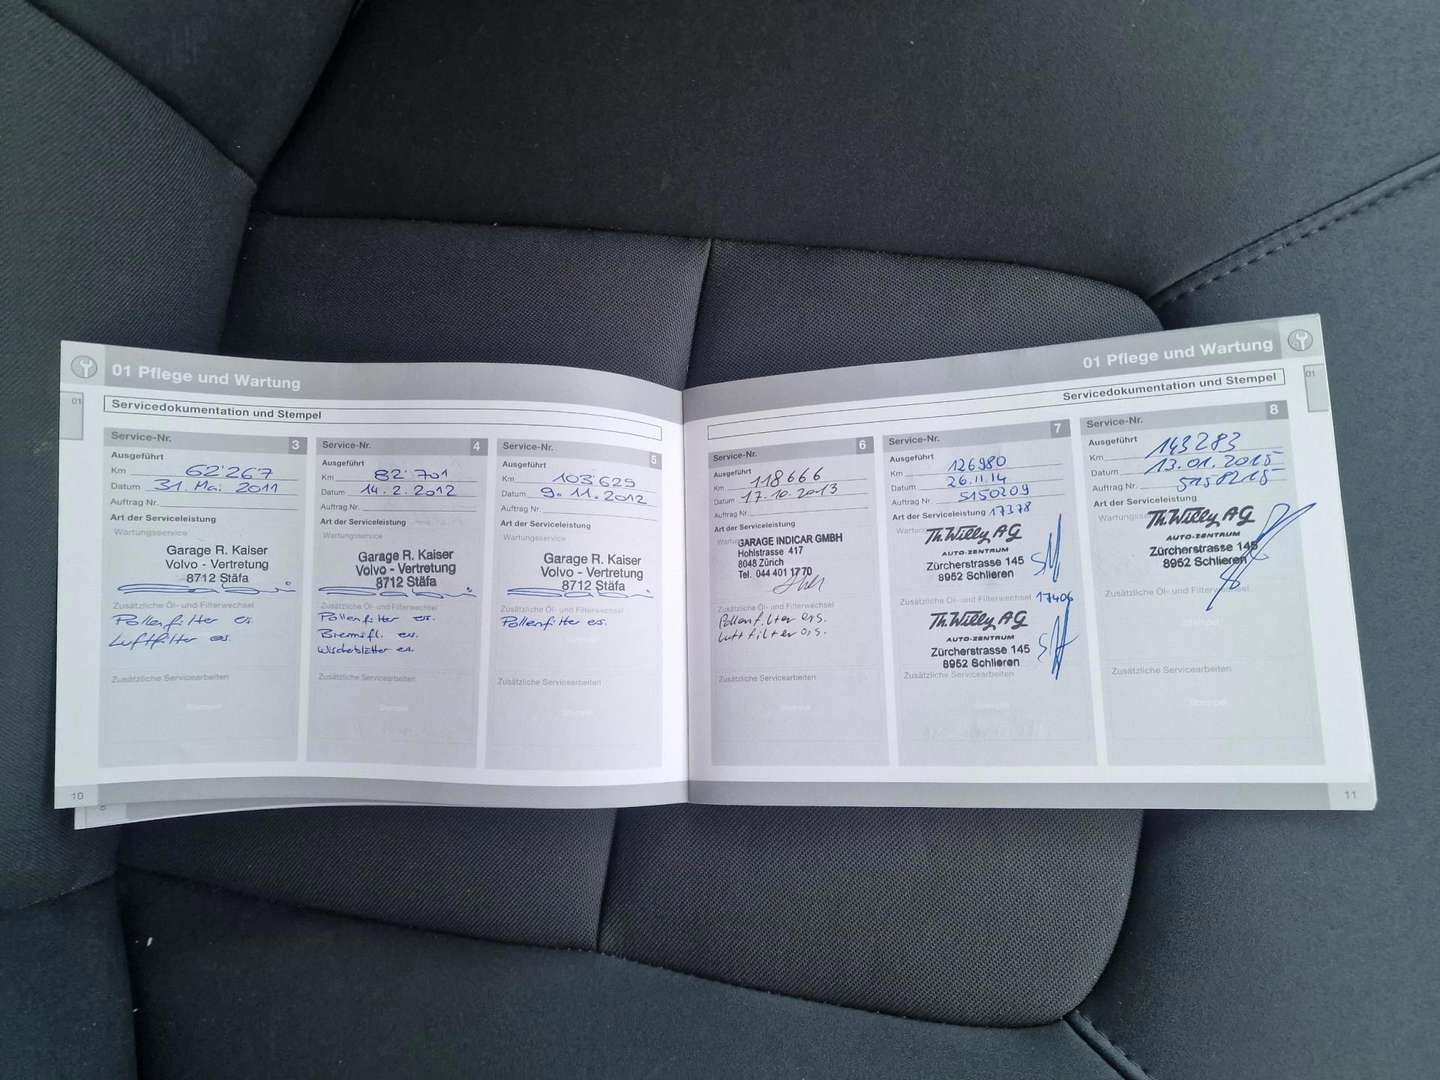 01 Pflege und Wartung
01
Servicedokumentation und Stempel
Service-Nr. 3
Ausgeführt
Km 62'267
Datum 31. Mai 2011
Auftrag Nr.
Art der Serviceleistung
Wartungsservice
Garage R. Kaiser
Volvo - Vertretung
8712 Stäfa
Zusätzliche Öl- und Filterwechsel
Pollenfilter ers.
Luftfilter ers.
Zusätzliche Servicearbeiten
Stempel
Service-Nr. 4
Ausgeführt
Km 82'701
Datum 14.2.2012
Auftrag Nr.
Art der Serviceleistung
Wartungsservice
Garage R. Kaiser
Volvo - Vertretung
8712 Stäfa
Zusätzliche Öl- und Filterwechsel
Pollenfilter ers.
Bremsfl. ers.
Wischerblätter ers.
Zusätzliche Servicearbeiten
Stempel
Service-Nr. 5
Ausgeführt
Km 103'629
Datum 9.11.2012
Auftrag Nr.
Art der Serviceleistung
Wartungsservice
Garage R. Kaiser
Volvo - Vertretung
8712 Stäfa
Zusätzliche Öl- und Filterwechsel
Pollenfilter ers.
Zusätzliche Servicearbeiten
Stempel
10
01 Pflege und Wartung
01
Servicedokumentation und Stempel
Service-Nr. 6
Ausgeführt
Km 118666
Datum 17.10.2013
Auftrag Nr.
Art der Serviceleistung
GARAGE INDICAR GMBH
Hohlstrasse 417
8048 Zürich
Tel. 044 401 17 70
Zusätzliche Öl- und Filterwechsel
Pollenfilter ers.
Luftfilter ers.
Zusätzliche Servicearbeiten
Stempel
Service-Nr. 7
Ausgeführt
Km 126980
Datum 26.11.14
Auftrag Nr. 5150209
Art der Serviceleistung 17378
Th. Willy AG
AUTO-ZENTRUM
Zürcherstrasse 145
8952 Schlieren
Zusätzliche Öl- und Filterwechsel 17406
Th. Willy AG
AUTO-ZENTRUM
Zürcherstrasse 145
8952 Schlieren
Zusätzliche Servicearbeiten
Stempel
Service-Nr. 8
Ausgeführt
Km 143283
Datum 13.01.2015
Auftrag Nr. 5158215
Art der Serviceleistung
Th. Willy AG
AUTO-ZENTRUM
Zürcherstrasse 145
8952 Schlieren
Zusätzliche Öl- und Filterwechsel
Stempel
Zusätzliche Servicearbeiten
Stempel
11